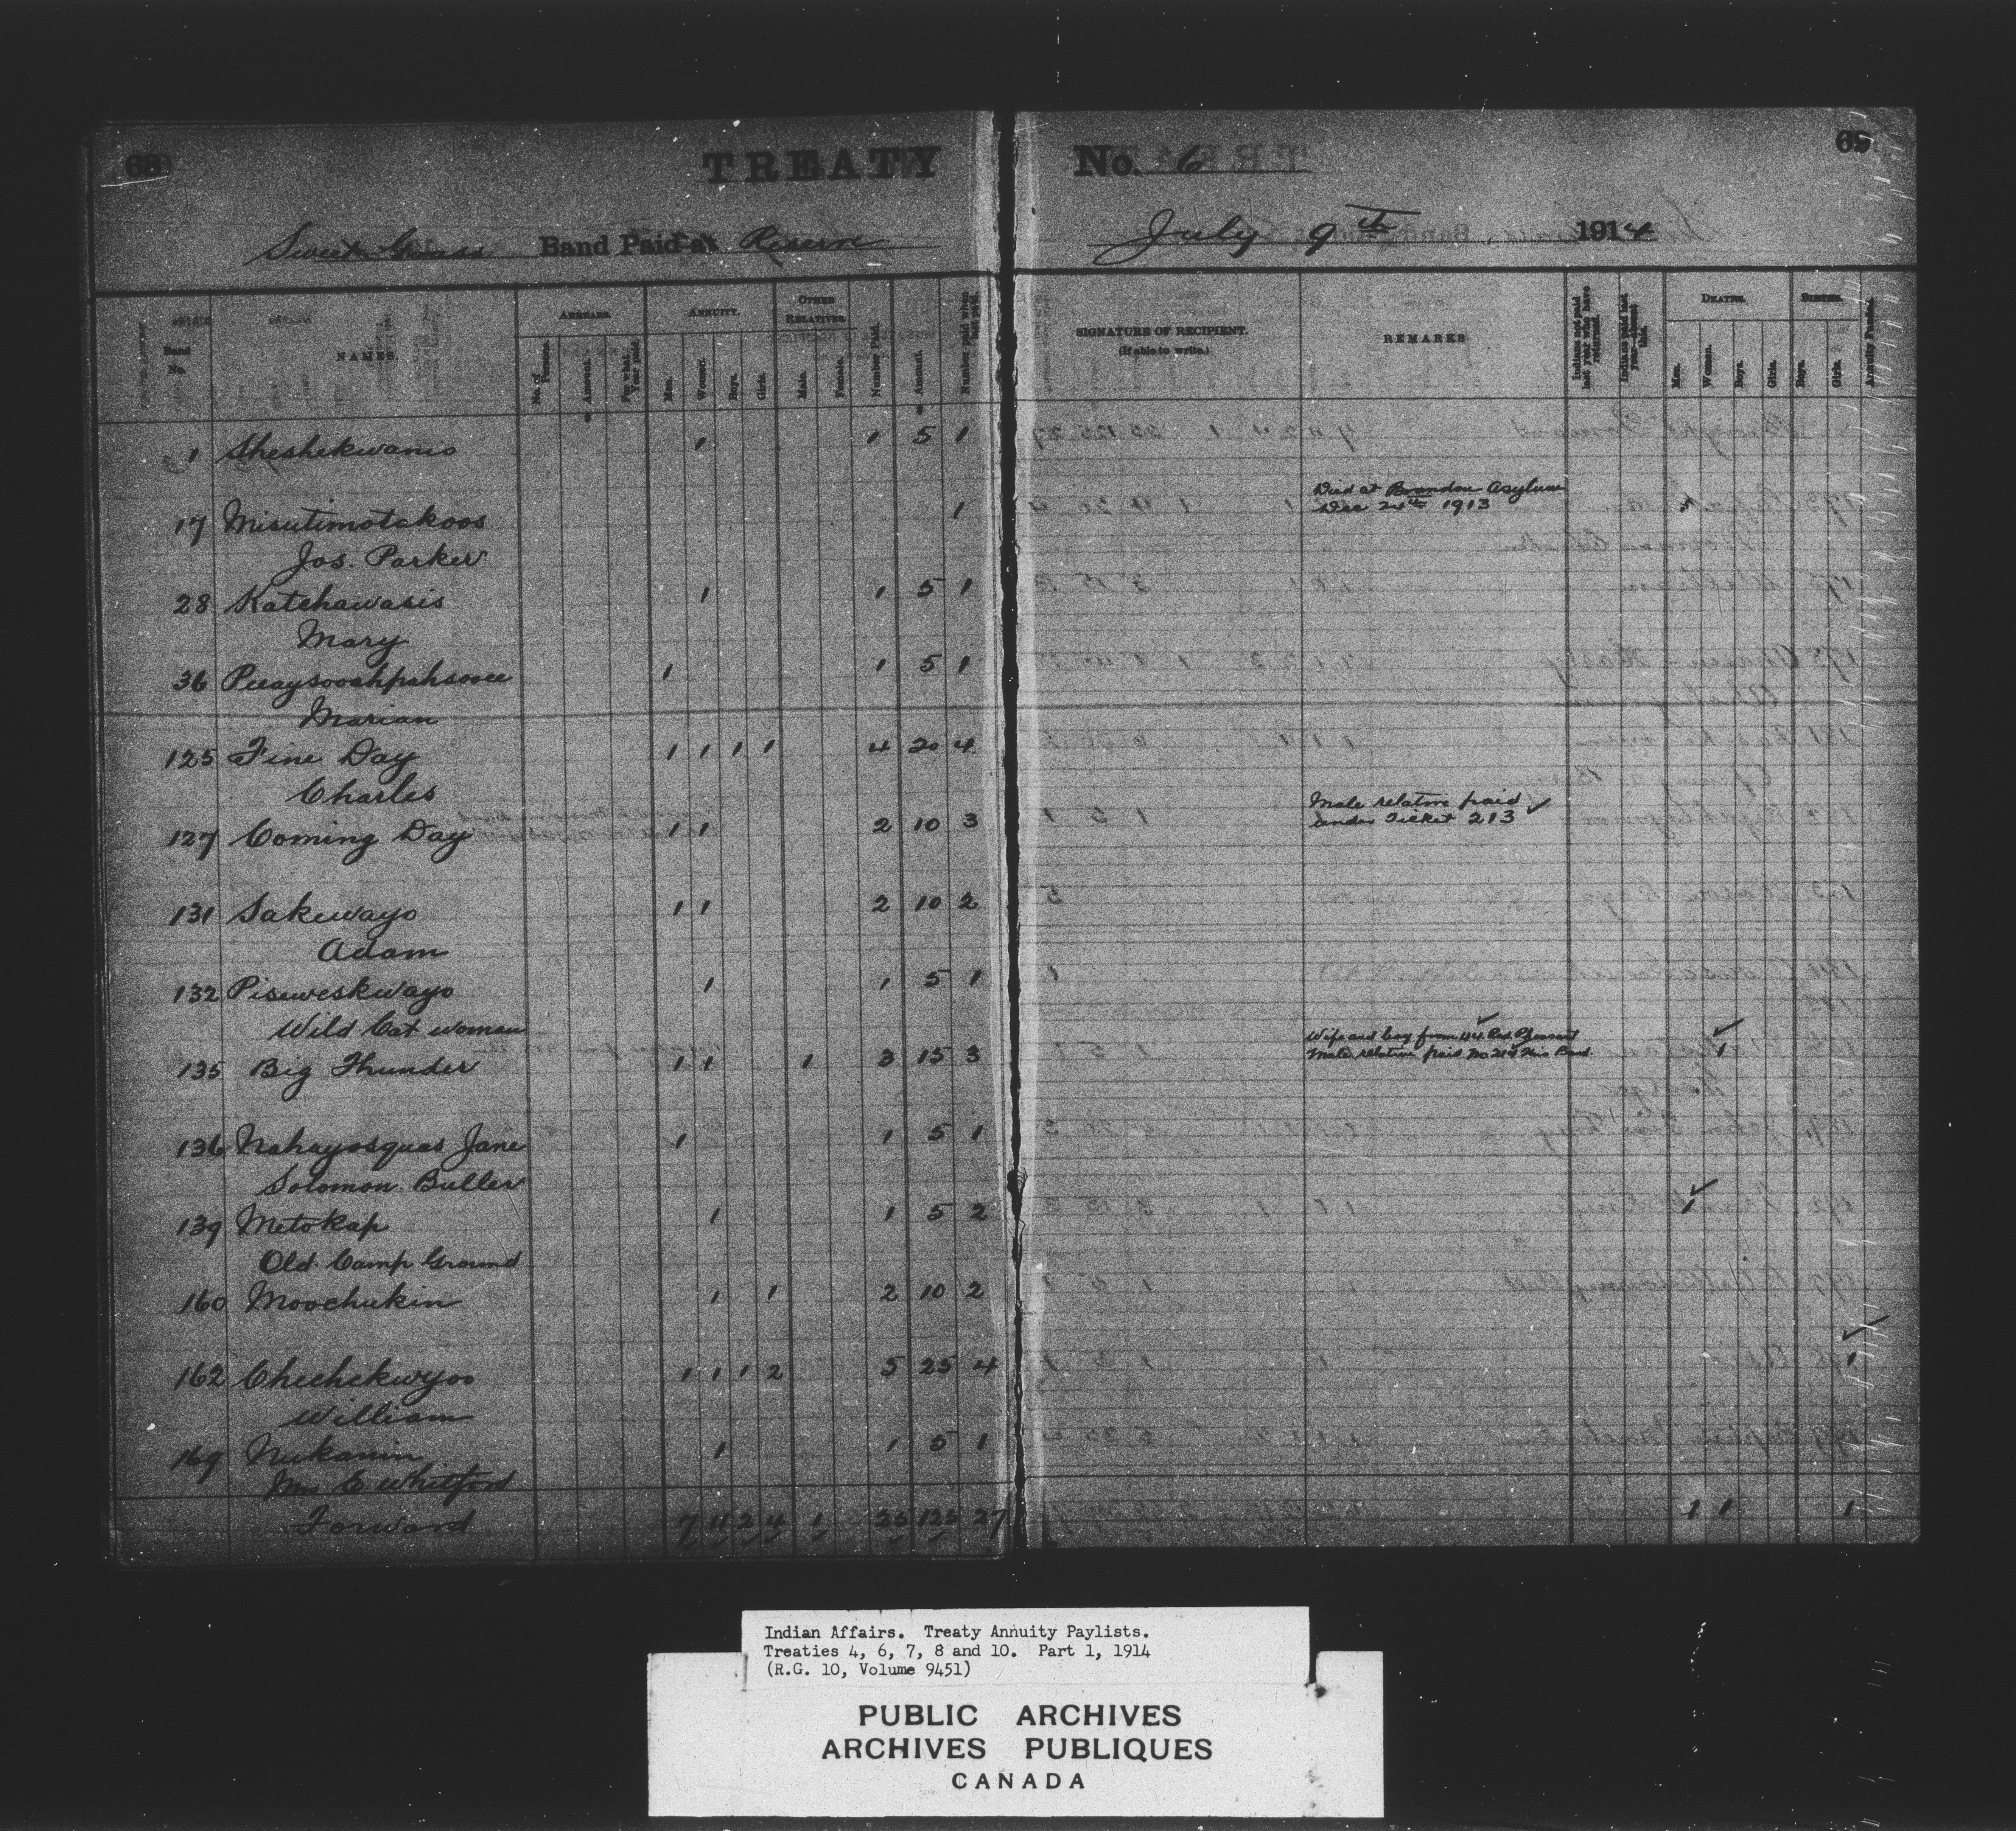 68
TREATY No. 6
69
Sweet Grass Band Paid at Reserve July 9th 1914
Band No.
NAMES.
ARREARS.
No. of Persons.
Amount.
For what Year paid.
ANNUITY.
Men.
Women.
Boys.
Girls.
OTHER RELATIVES.
Male.
Female.
Number Paid.
Amount.
Number paid when last paid.
SIGNATURE OF RECIPIENT.
(If able to write.)
REMARKS
Indians not paid last year who have returned.
Indians paid last year—absent this.
DEATHS.
Men.
Women.
Boys.
Girls.
BIRTHS.
Boys.
Girls.
Annuity Funds.
1 Sheshekwanis 1 1 5 1
17 Misutimotakoos 1 Died at Brandon Asylum
Dec 24th 1913 1
Jos. Parker
28 Katchawasis 1 1 5 1
Mary
36 1 1 5 1
Marian
125 Fine Day 1 1 1 1 4 20 4
Charles
127 Coming Day 1 1 2 10 3 Male relative paid ✓
under Ticket 213
131 Sakewayo 1 1 2 10 2
Adam
132 Piseweskwayo 1 1 5 1
Wild Cat woman
135 Big Thunder 1 1 1 3 15 3 Wife and boy from 44 Red Pheasant ✓
Male relative paid No 214 this Band 1 ✓
136 Nahayosquas Jane 1 1 5 1
Solomon Buller
139 Metokap 1 1 5 2 1 ✓
Old Camp Ground
160 Moochukin 1 1 2 10 2
162 Cheehekwyoo 1 1 1 2 5 25 4 1 ✓
William
169 Nukawin 1 1 5 1
Mrs C Whitford
Forward 7 11 2 4 1 25 125 27 1 1 1
Indian Affairs. Treaty Annuity Paylists.
Treaties 4, 6, 7, 8 and 10. Part 1, 1914
(R.G. 10, Volume 9451)
PUBLIC ARCHIVES
ARCHIVES PUBLIQUES
CANADA